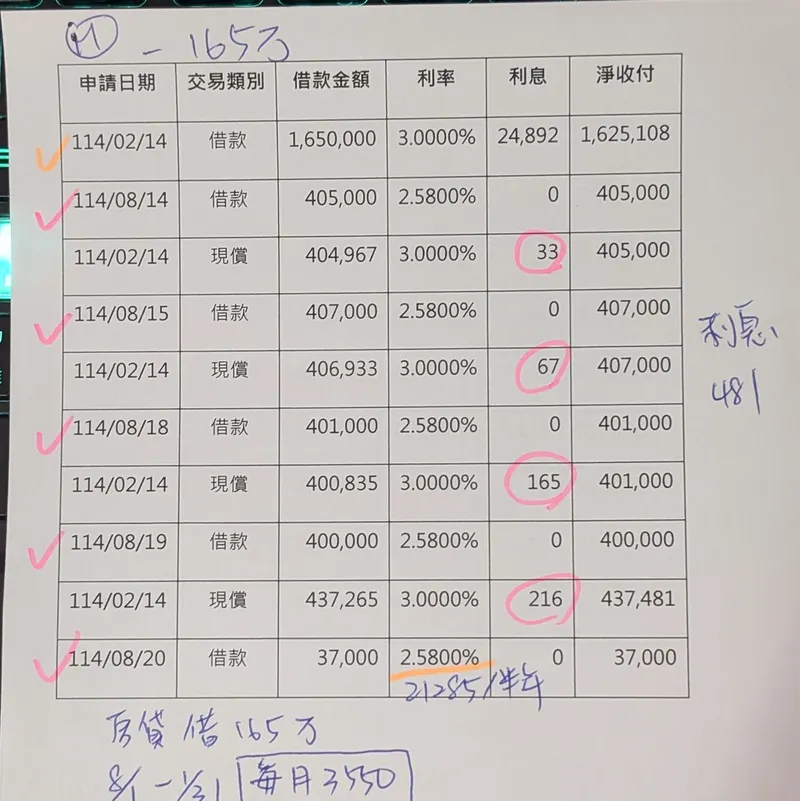 P1 - 165万
申請日期 交易類別 借款金額 利率 利息 淨收付
114/02/14 借款 1,650,000 3.0000% 24,892 1,625,108
114/08/14 借款 405,000 2.5800% 0 405,000
114/02/14 現償 404,967 3.0000% 33 405,000
114/08/15 借款 407,000 2.5800% 0 407,000
114/02/14 現償 406,933 3.0000% 67 407,000
利息
481
114/08/18 借款 401,000 2.5800% 0 401,000
114/02/14 現償 400,835 3.0000% 165 401,000
114/08/19 借款 400,000 2.5800% 0 400,000
114/02/14 現償 437,265 3.0000% 216 437,481
114/08/20 借款 37,000 2.5800% 0 37,000
21285/半年
房貸借165万
8/1-1/31 每月3550